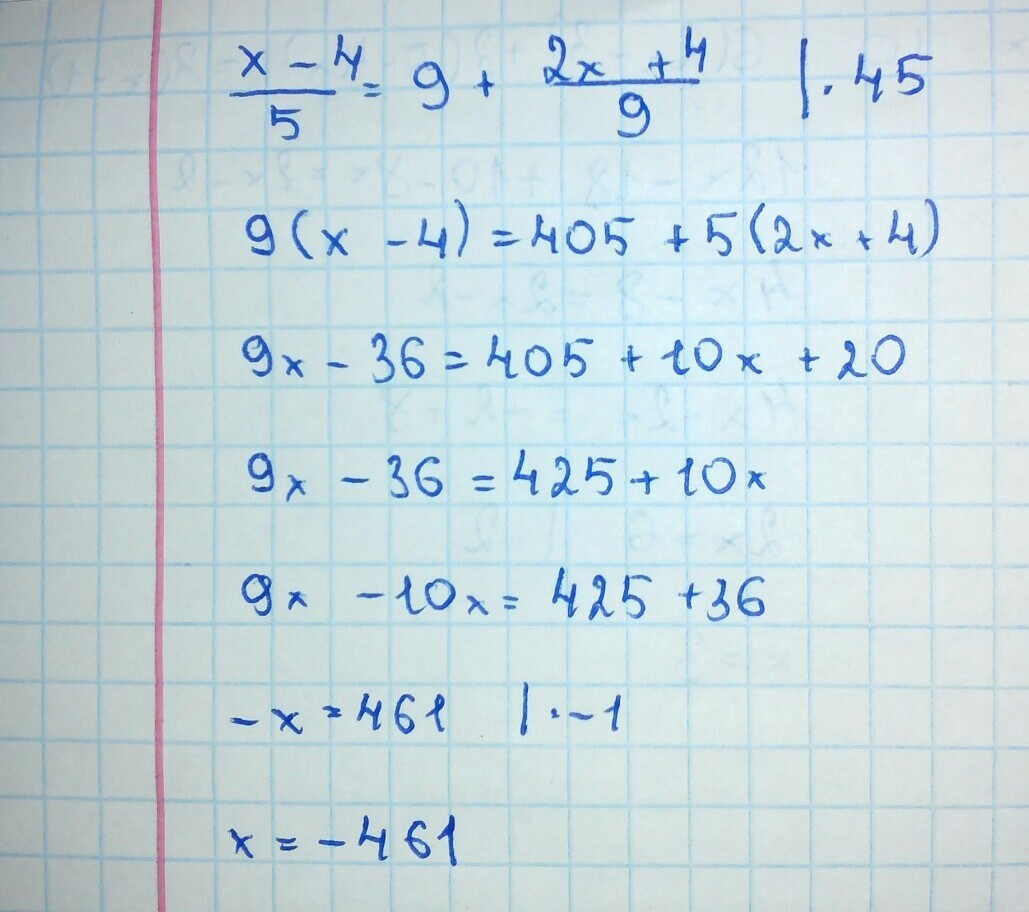 x - 4 / 5 = 9 + 2x + 4 / 9 | · 45
9(x - 4) = 405 + 5(2x + 4)
9x - 36 = 405 + 10x + 20
9x - 36 = 425 + 10x
9x - 10x = 425 + 36
-x = 461 | · -1
x = -461